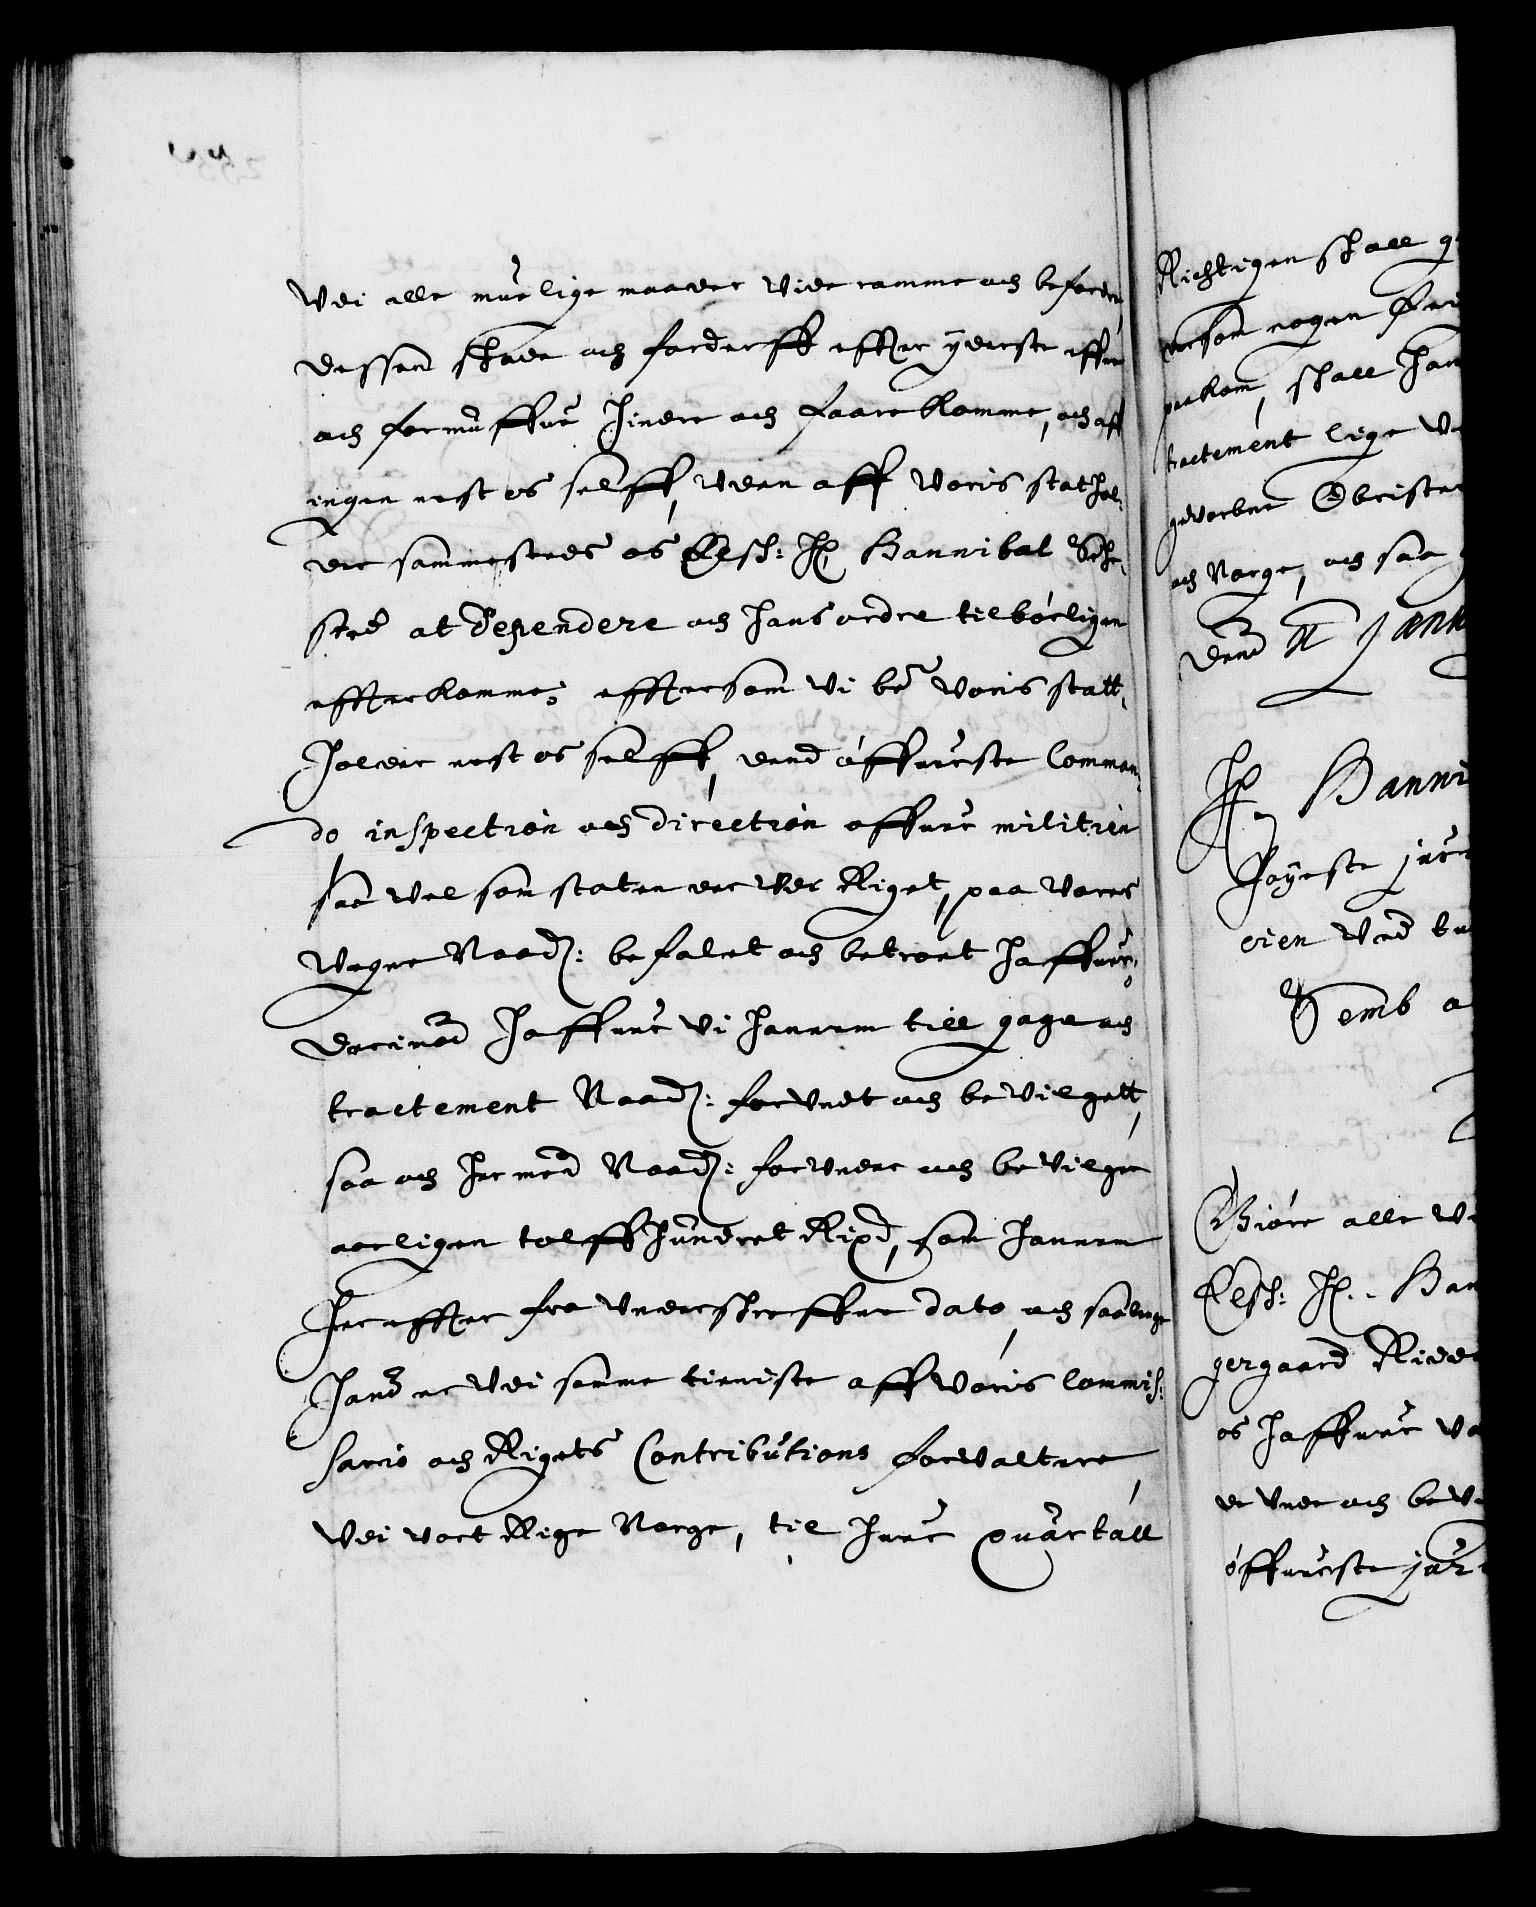 Udi alle muelige maader vide ramme och befordre,
dessen skade och forderff effter yderste effne
och formuffue hindre och faarekomme, och aff
ingen nest os selff, uden aff Voris stathol¬
der sammesteds os Elsch: Hr Hannibal Sehe¬
sted at dependere och hans ordre tilbörligen
effterkomme; efftersom Vi bete Voris statt¬
holder nest os selff, dend öffuerste Comman¬
do inspection och direction offuer militien
saa vel som staten der udi Riget, paa Vores
Vegne Naadl: befalet och betroet haffuer,
Derimod haffuer Vi hannem till gage och
tractement Naadl: forundt och bevilgett,
saa och hermed Naadl: forunder och bevilger
aarligen tolffhundret Rixd, som hannem
hereffter fra underskreffne dato, och saalenge
hand er udi samme tieniste aff Voris Commis¬
sario och Rigets Contributions forvaltere,
Udi vort Rige Norge, til huer quartall
Richtigen skall g
ersom nogen Fei
paakom, skall han
tractement lige v
gevorbne Obrister
och Norge, och saa
Dend Janu
Hr Hanni
Høyeste jur
eien Und tu
Semb a
Giöre alle Vi
Elsch: Hr. Han
gergaard Ridd
os haffuer vo
de unde och bevi
öffuerste jur